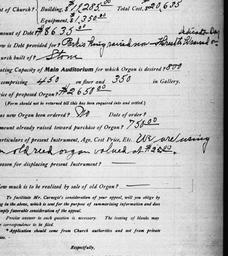 of Church? Building, $11,205.00 Total Cost, $20,635
Equipment, $1,250.00
Amount of Debt? $8635.00
is Debt provided for? Paid & being raised now
built of? Stone
ating Capacity of Main Auditorium for which Organ is desired? 800
comprising 450 on floor and 350 in Gallery.
rice of proposed Organ? $2650.00
(Form should not be returned till this has been inquired into and settled.)
as new Organ been Ordered? No Date of order?
mount already raised toward purchase of Organ? 750.00
articulars of present Instrument, Age, Cost, Price, Etc. We are using
old reed organ valued at
eason for displacing present Instrument?
How much is to be realized by sale of old Organ?
To facilitate Mr. Carnegie's consideration of your appeal, will you oblige by
ing in the above, which is sent for the purpose of summarizing information and does
imply favorable consideration of the appeal.
Precise answer to each question is necessary. The leaving of blanks may
correspondence to be filed.
Application should come from Church authorities and not from private
Respectfully,